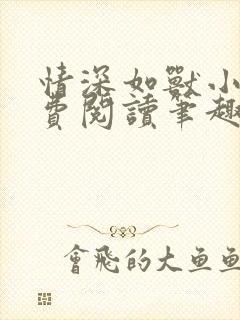 情深如獸小
費閱讀筆趣
會飛的大魚魚